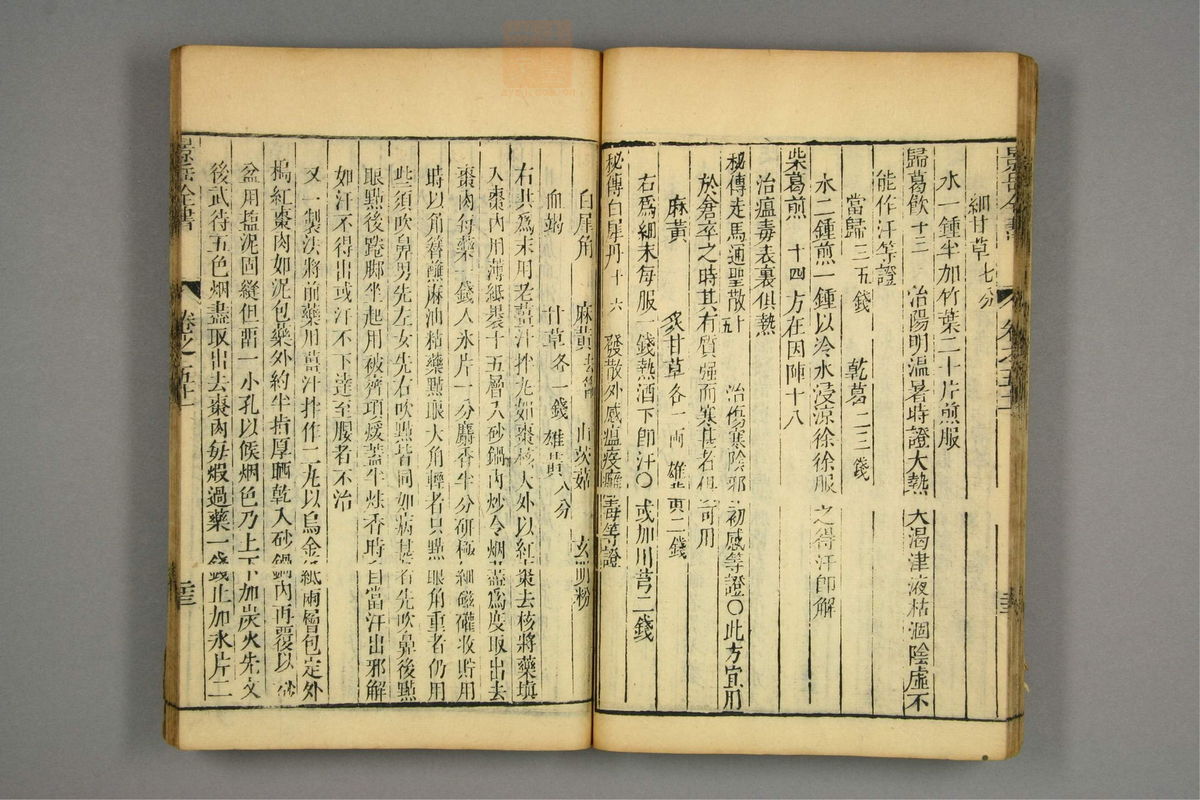 景岳全書
卷之五十一
細甘草七分
水一鍾半加竹葉二十片煎服
歸葛飲十三 治陽明溫暑時證大熱大渴津液枯涸陰虛不
能作汗等證
當歸三五錢 乾葛二三錢
水二鍾煎一鍾以冷水浸涼徐徐服之得汗即解
柴葛煎 十四方在因陣十八
治瘟毒表裏俱熱
秘傳走馬通聖散十五 治傷寒陰邪初感等證○此方宜用
於倉卒之時其有質強而寒甚者俱可用
麻黃 炙甘草各一兩 雄黃二錢
右爲細末每服一錢熱酒下即汗○或加川芎二錢
秘傳白犀丹十六 發散外感瘟疫癰毒等證
白犀角 麻黃去節 山茨菇 玄明粉
血竭 甘草各一錢 雄黃八分
右共爲末用老薑汁拌丸如棗核大外以紅棗去核將藥填
入棗內用薄紙裹十五層入砂鍋內炒令烟盡爲度取出去
棗肉每藥一錢入冰片一分麝香半分研極細磁礶收貯用
時以角簪蘸麻油粘藥點眼大角輕者只點眼角重者仍用
些須吹鼻男先左女先右吹點皆同如病甚者先吹鼻後點
眼點後踡脚坐起用被齊項煖蓋半炷香時自當汗出邪解
如汗不得出或汗不下達至腰者不治
又一製法將前藥用薑汁拌作二丸以烏金紙兩層包定外
搗紅棗肉如泥包藥外約半指厚晒乾入砂鍋內再覆以砂
盆用鹽泥固縫但畱一小孔以候烟色乃上下加炭火先文
後武待五色烟盡取出去棗肉每煅過藥一錢止加冰片二
景岳全書
卷之五十一